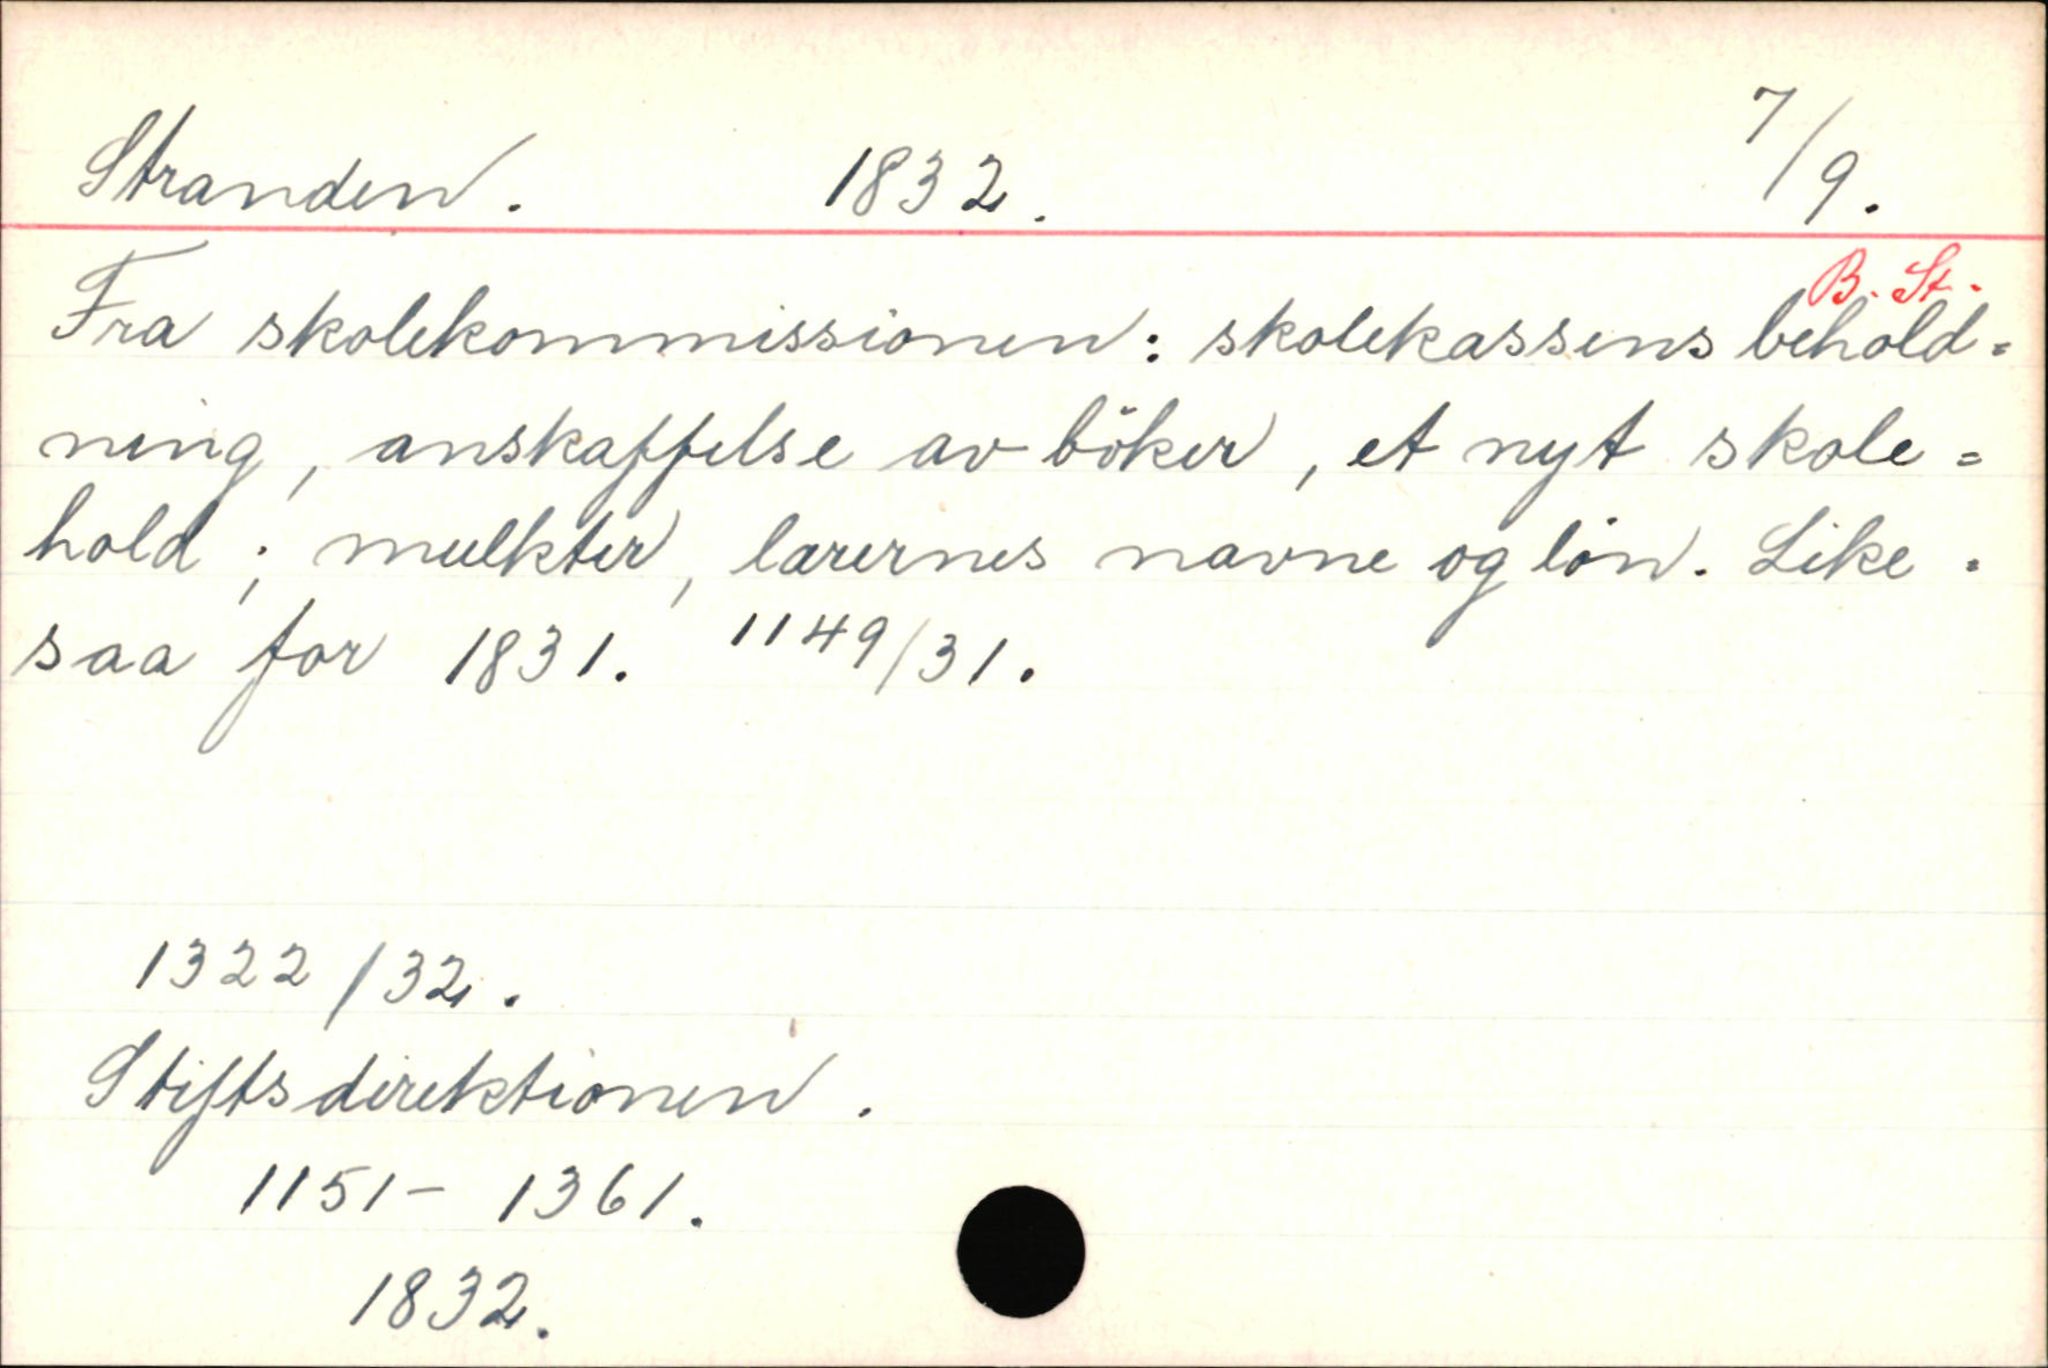 Stranden. 1832. 7/9.
B. St.
Fra skolekommissionen: skolekassens behold=
ning, anskaffelse av böker, et nyt skole=
hold; mulkter, lærernes navne og lön. Like=
saa for 1831. 1149/31.
1322/32.
Stiftsdirektionen.
1151- 1361.
1832.